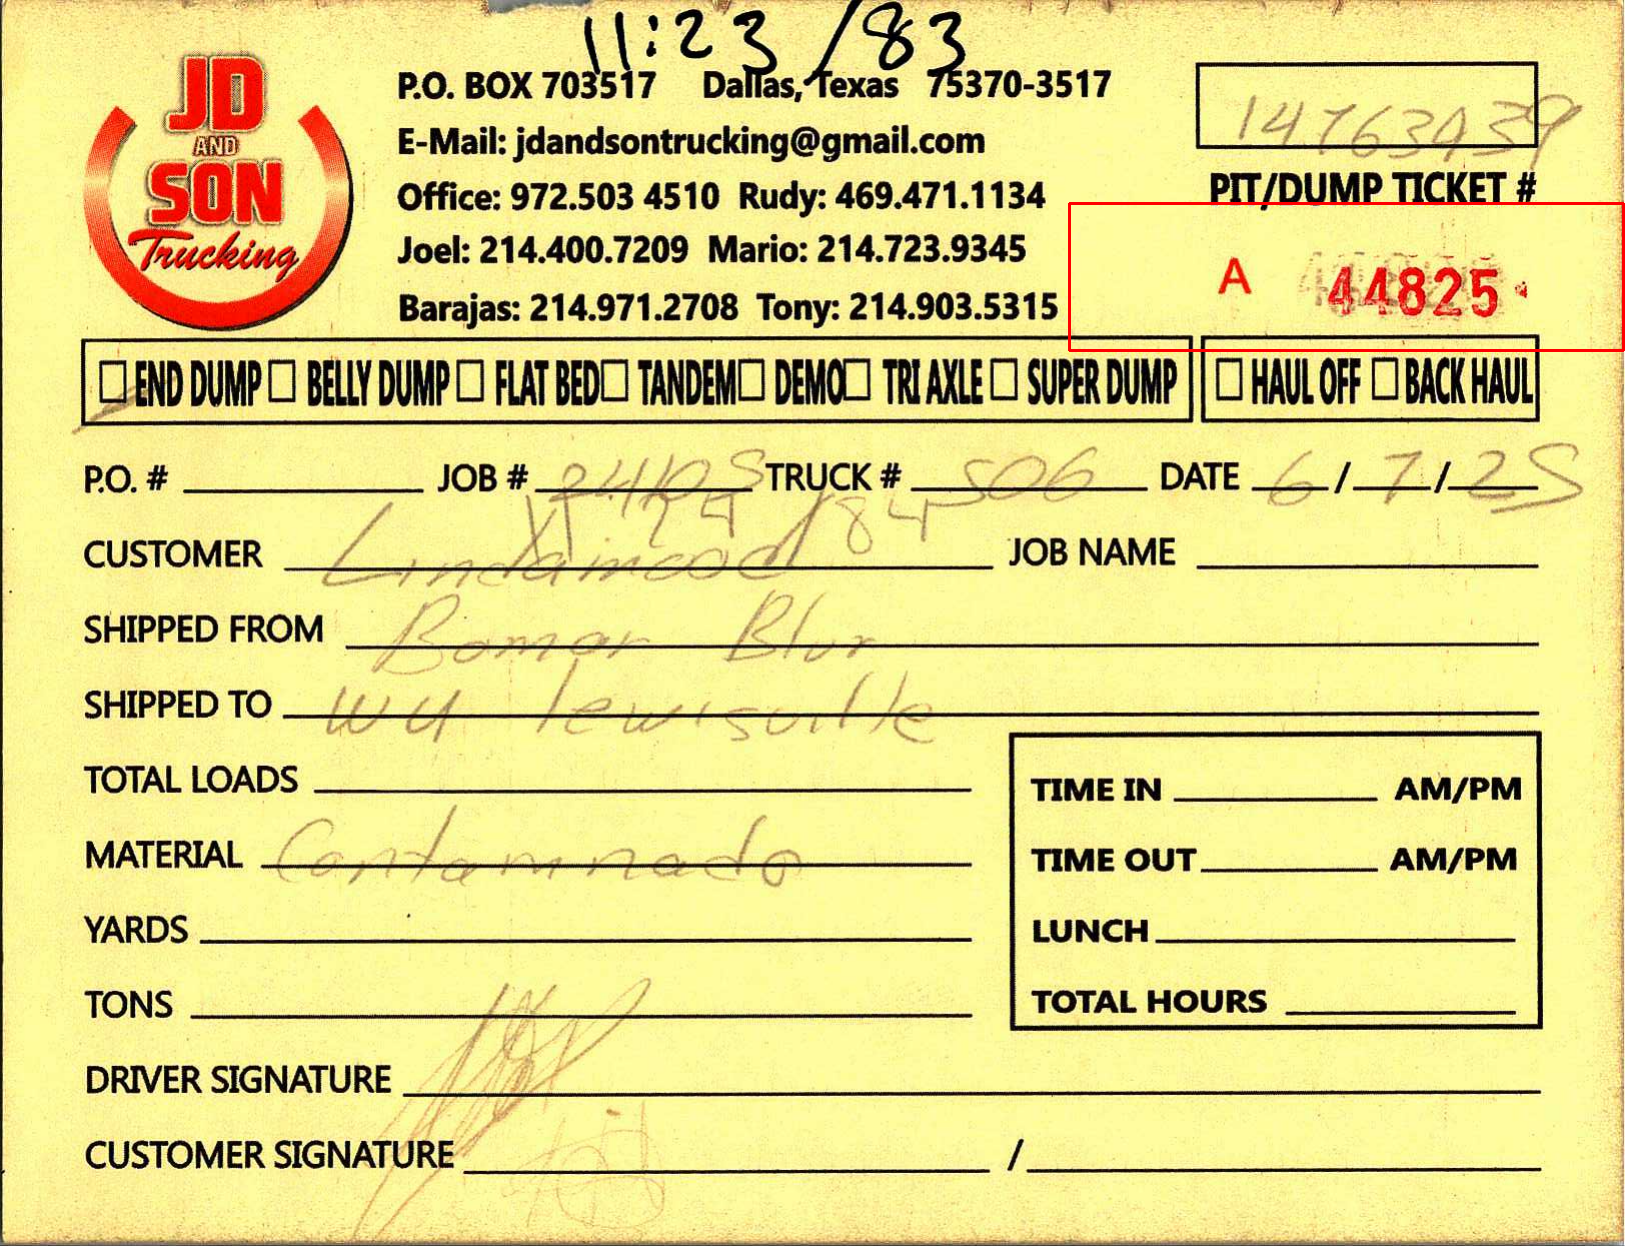 11:23 /83
JD
AND
SON
Trucking
P.O. BOX 703517 Dallas, Texas 75370-3517
E-Mail: jdandsontrucking@gmail.com
Office: 972.503 4510 Rudy: 469.471.1134
Joel: 214.400.7209 Mario: 214.723.9345
Barajas: 214.971.2708 Tony: 214.903.5315
PIT/DUMP TICKET #
A 44825
END DUMP BELLY DUMP FLAT BED TANDEM DEMO TRI AXLE SUPER DUMP HAUL OFF BACK HAUL
P.O. # JOB # TRUCK # 506 DATE 6/7/25
CUSTOMER Lindamood JOB NAME
SHIPPED FROM Bomar Blvr
SHIPPED TO WM lewisville
TOTAL LOADS
MATERIAL Contaminado
YARDS
TONS
TIME IN AM/PM
TIME OUT AM/PM
LUNCH
TOTAL HOURS
DRIVER SIGNATURE
CUSTOMER SIGNATURE /